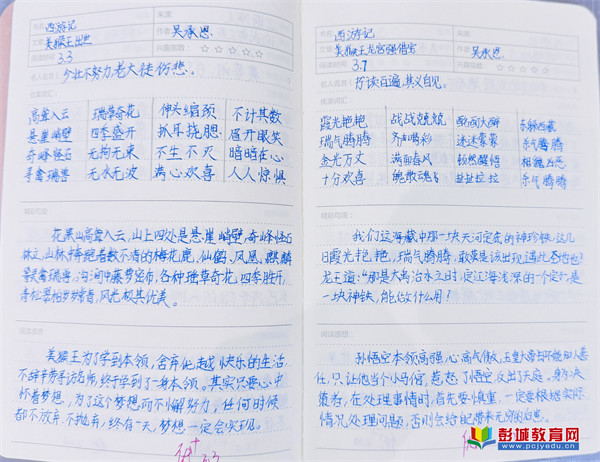 西游记
美猴王出世
吴承恩
3.3
少壮不努力老大徒伤悲。
高耸入云 瑶草奇花 伸头缩颈 不计其数
悬崖峭壁 四季盛开 抓耳挠腮 眉开眼笑
奇峰怪石 无拘无束 不生不灭 暗暗在心
寻禽瑞兽 无水无波 满心欢喜 人人惊惧
精彩句段:
花果山高耸入云,山上四处是悬崖峭壁,奇峰怪石
林立,山林中奔跑着数不清的梅花鹿、仙鹤、凤凰、麒麟
等灵禽瑞兽;沟涧中藤萝密布,各种瑶草奇花,四季盛开,
青松翠柏郁郁葱葱,风光极其优美。
阅读感想:
美猴王为了学到本领,舍弃他超快乐的生活,
不辞辛劳寻访名师,终于学到了一身本领。其实只要心中
怀着梦想,为了这个梦想而不懈努力,任何时候
都不放弃、不抛弃,终有一天,梦想一定会实现。
3.3
西游记
美猴王龙宫强借宝
吴承恩
3.7
好读百遍,其义自见。
霞光艳艳 战战兢兢 酩酊大醉 东躲西藏
瑞气腾腾 齐声喝彩 迷迷蒙蒙 杀气腾腾
金光万丈 满面春风 顿然醒悟
十分欢喜 魄散魂飞 杀气腾腾
精彩句段:
我们这海藏中那一块天河定底的神珍铁,这几
日霞光艳艳,瑞气腾腾,敢莫是该出现,遇此圣也?
龙王道:“那是大禹治水之时,定江海浅深的一个定子,是
一块神铁,能做什么用?
阅读感想:
孙悟空本领高强,心高气傲,玉皇大帝却不能知人善
任,只让他当个小马倌,惹怒了悟空,反出了天庭。身为决
策者,在处理事情时,首先要慎重,一定要根据实际
情况处理问题,否则会给自己带来无穷的后患。
彭城教育网
www.pcjyedu.cn